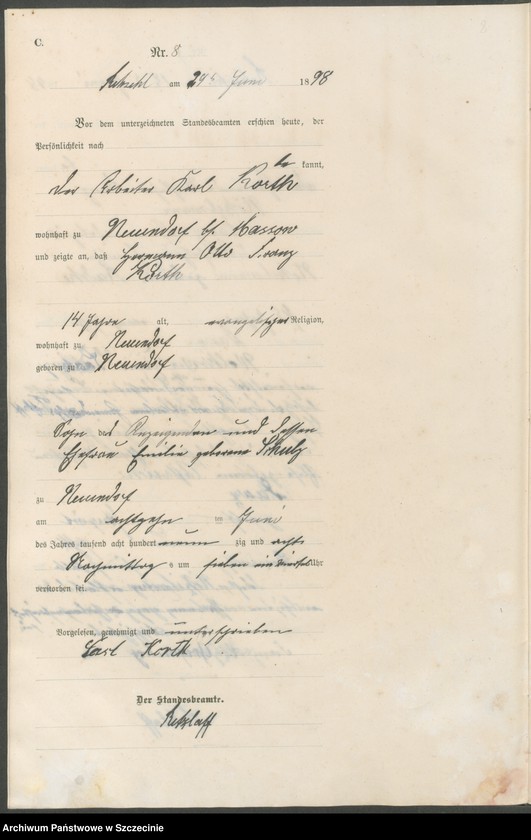 C.
Nr. 8
am 29ten Juni 1898
Vor dem unterzeichneten Standesbeamten erschien heute, der
Persönlichkeit nach
be kannt,
der Arbeiter Karl Korth
wohnhaft zu Neuendorf b/ Massow
und zeigte an, daß Hermann Otto Franz
Korth
14 Jahre alt, evangelischer Religion,
wohnhaft zu Neuendorf
geboren zu Neuendorf
Sohn des Anzeigenden und dessen
Ehefrau Emilie geborene Schulz
zu Neuendorf
am achtzehn im Juni
des Jahres tausend acht hundert neun zig und acht
Nachmittag s um sieben ein viertel Uhr
verstorben sei.
Vorgelesen, genehmigt und unterschrieben
Carl Korth
Der Standesbeamte.
Retzlaff
Archiwum Państwowe w Szczecinie